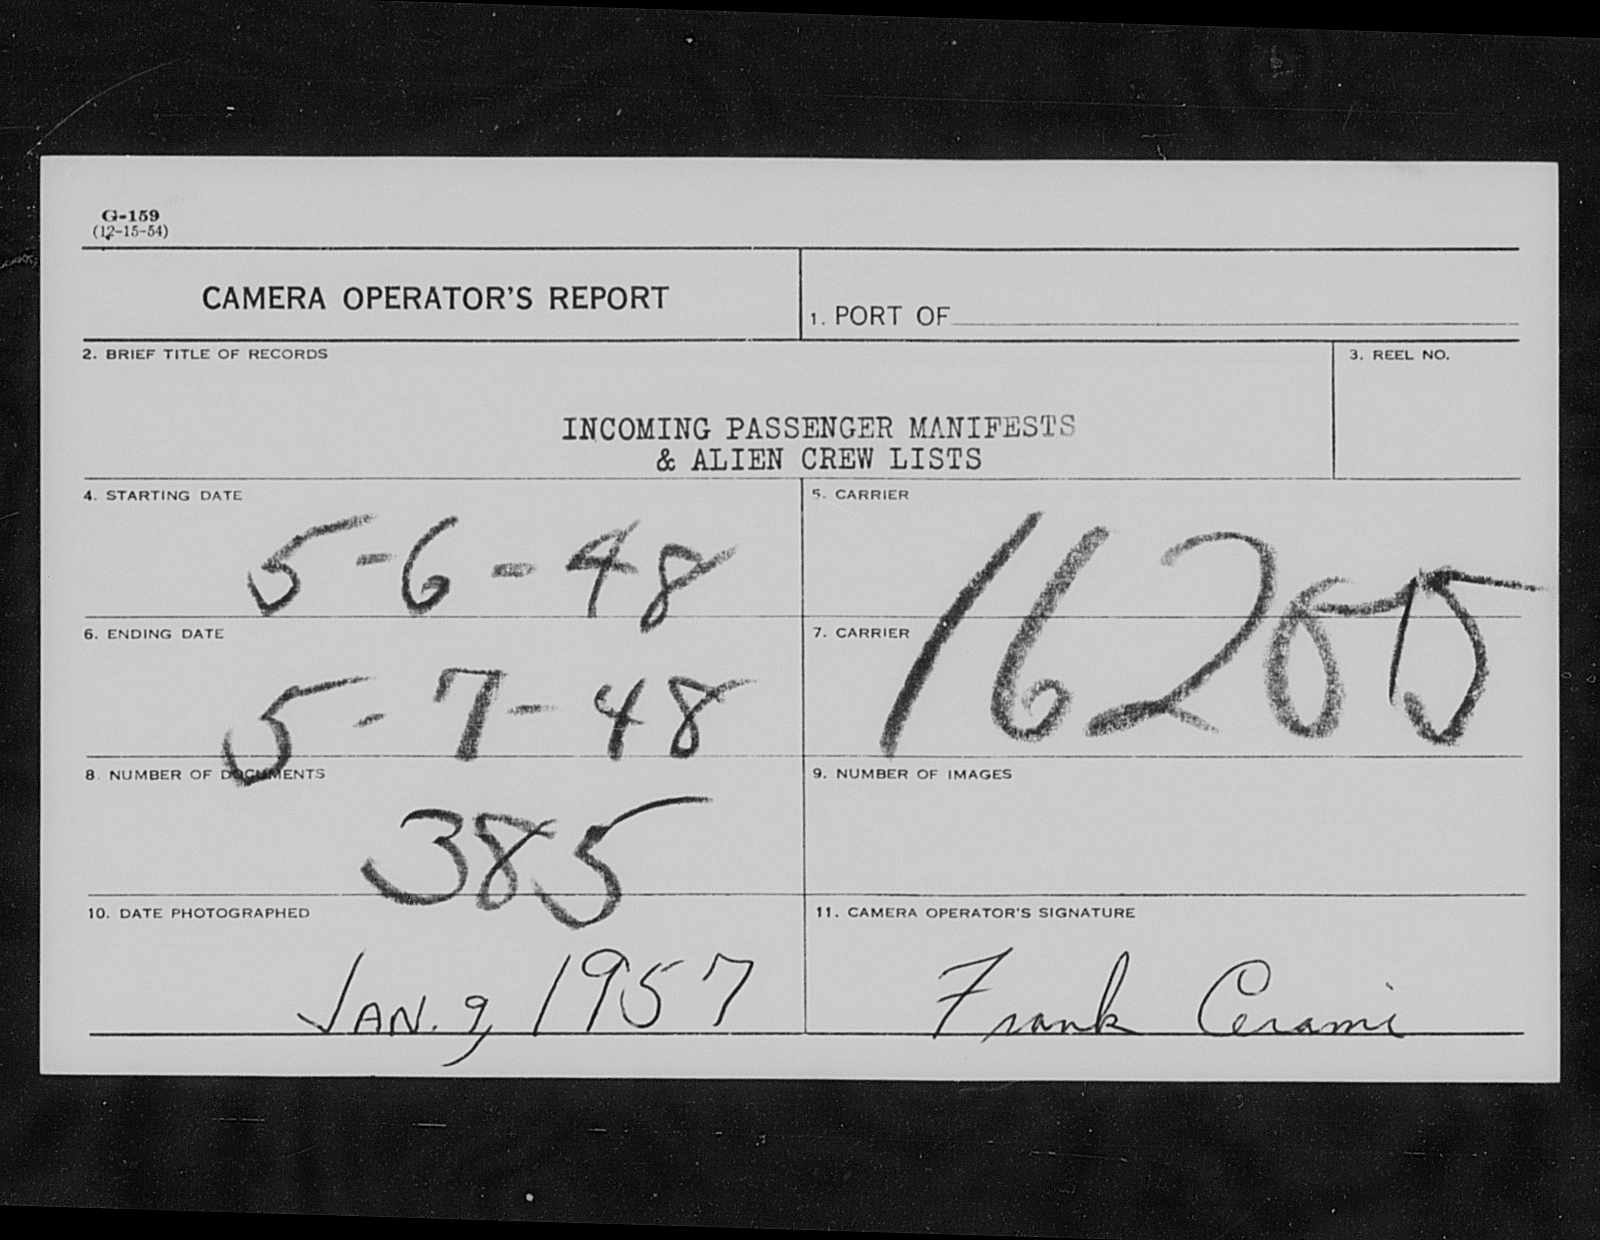 G-159
(12-15-54)
CAMERA OPERATOR'S REPORT
1. PORT OF
2. BRIEF TITLE OF RECORDS
3. REEL NO.
INCOMING PASSENGER MANIFESTS
& ALIEN CREW LISTS
4. STARTING DATE
5-6-48
5. CARRIER
6. ENDING DATE
5-7-48
7. CARRIER
16205
8. NUMBER OF DOCUMENTS
385
9. NUMBER OF IMAGES
10. DATE PHOTOGRAPHED
JAN. 9, 1957
11. CAMERA OPERATOR'S SIGNATURE
Frank Cerami